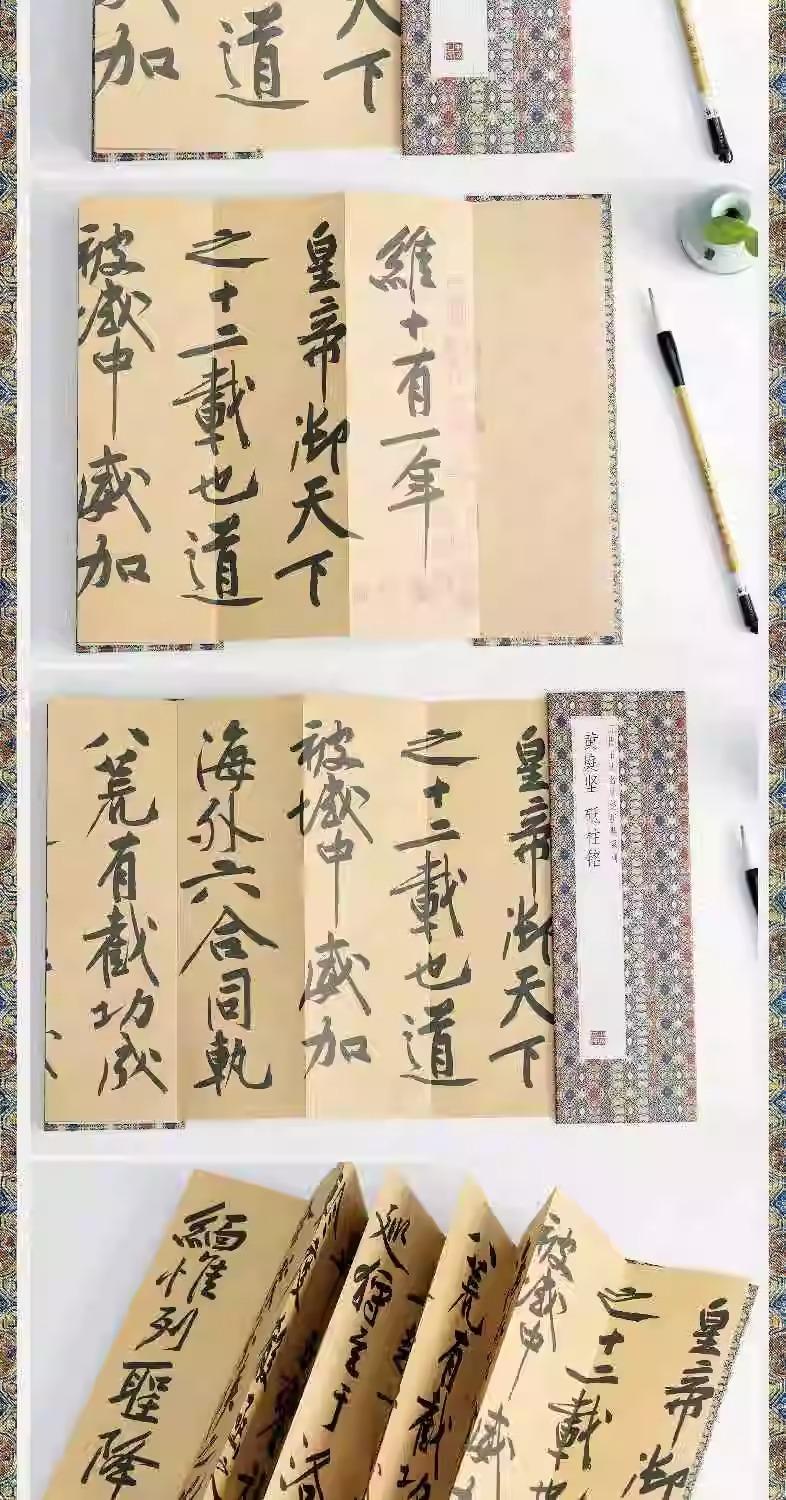 天下
道
加
維十有一年
皇帝御天下
之十二載也道
被域中威加
黄庭坚 砥柱铭
皇帝御天下
之十二載也道
被域中威加
海外六合同軌
八荒有截功成
皇帝御
之十二載
被域中威
八荒有截功
緬惟列聖降